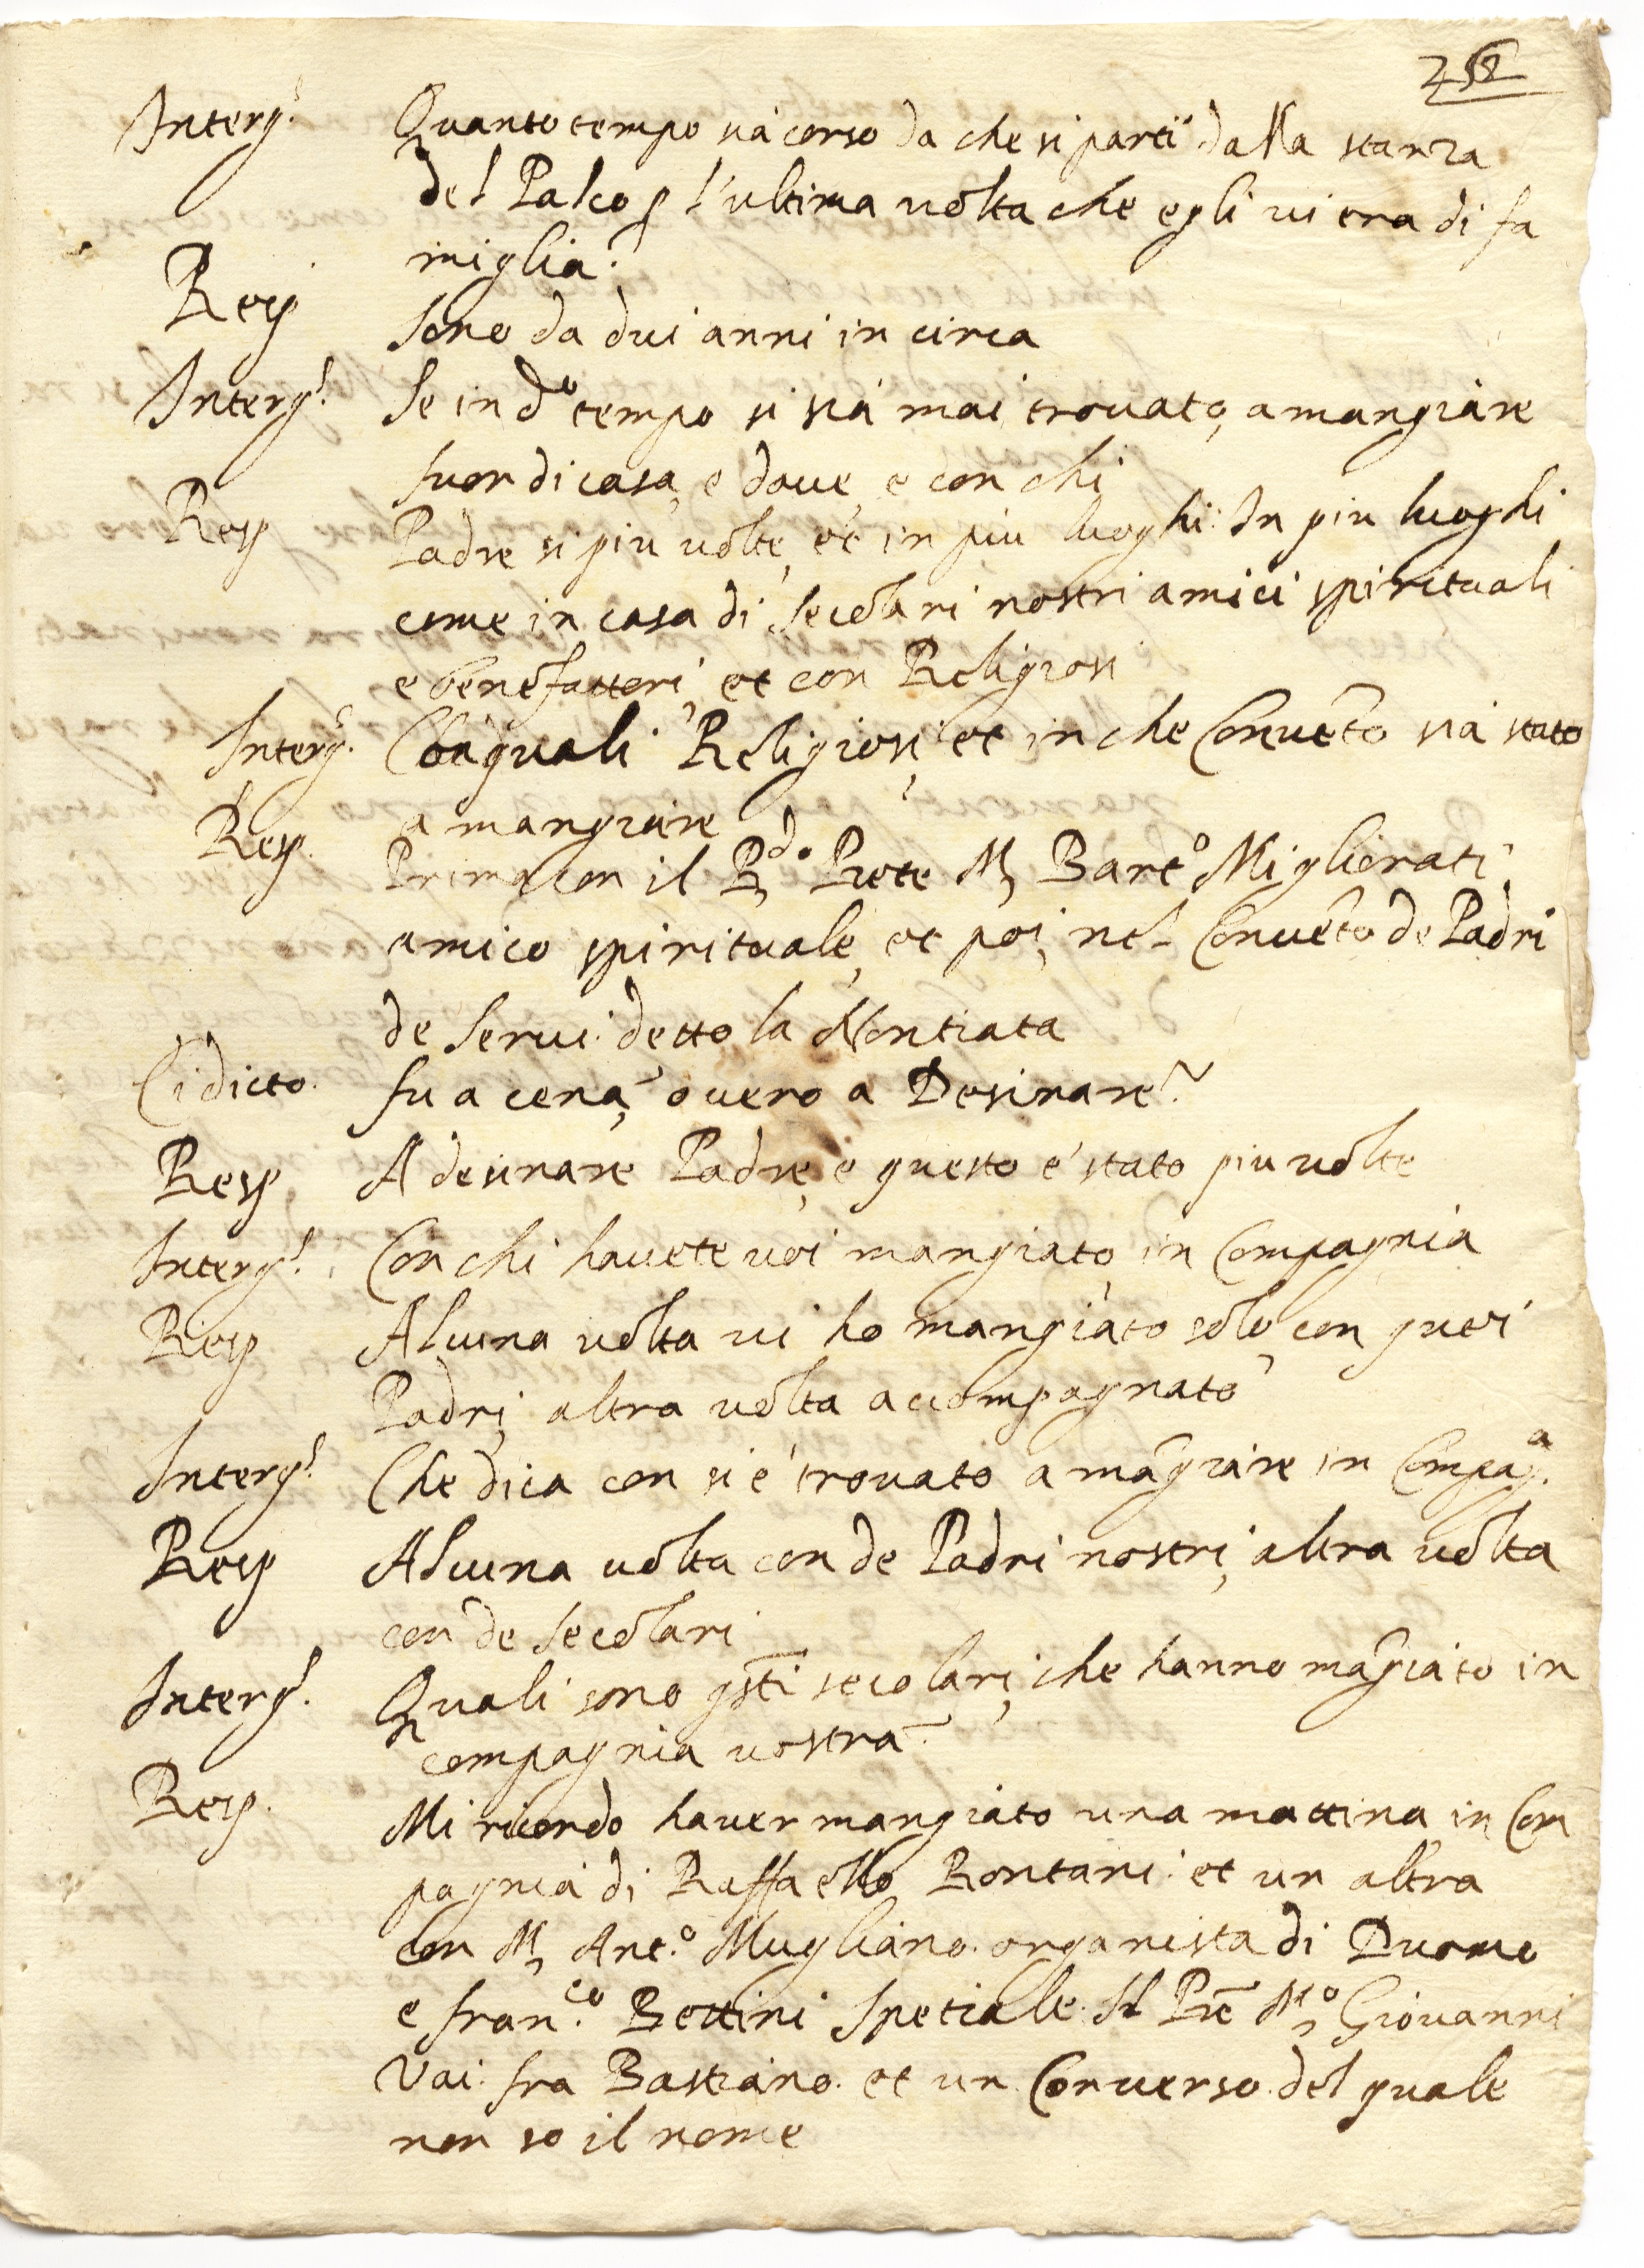 Interg.ͥ Quanto tempo sia corso da che si parti dalla stanza
del Palco p l'ultima uolta che egli ui era di fa
miglia.
Resp Sono da dui anni in circa
Interg.ͥ Se in d.ͦ tempo si sia mai trouato, a mangiare
fuor di casa, e doue, e con chi
Resp Padre si piu uolte, et in piu luoghi: In piu luoghi
come in casa di Secolari nostri amici spirituali
e benefattori, et con Religiosi
Interg.ͥ Cō quali Religiosi, et in che Conuēto sia stato
a mangiare
Resp. Prima con il R.do Prete M, Bart.o Migliorati,
amico spirituale, et poi, nel Conuēto de Padri
de Serui. detto la Nontiata
Ei dicto. fu a cena, o uero a Desinare?
Resp A desinare Padre, e questo e' stato piu uolte
Interg.ͥ Con chi hauete uoi mangiato, in Compagnia
Resp Alcuna uolta ui ho mangiato solo, con quei
Padri, altra uolta accompagnato
Interg.ͥ Che dica con si e' trouato a māgiare in Compag.a
Resp Alcuna uolta con de Padri nostri, altra uolta
con de Secolari
Interg.ͥ Quali sono q̄sti secolari, che hanno māgiato in
compagnia uostra.
Resp. Mi ricordo hauer mangiato una mattina in Com
pagnia di Raffaello Rontani. et un altra
con M, Ant.o Mugliano. organista di Duomo
e fran.co Bettini Spetiale. Il Prē M.o Giouanni
Vai. fra Bastiano. et un Conuerso. del quale
non so il nome